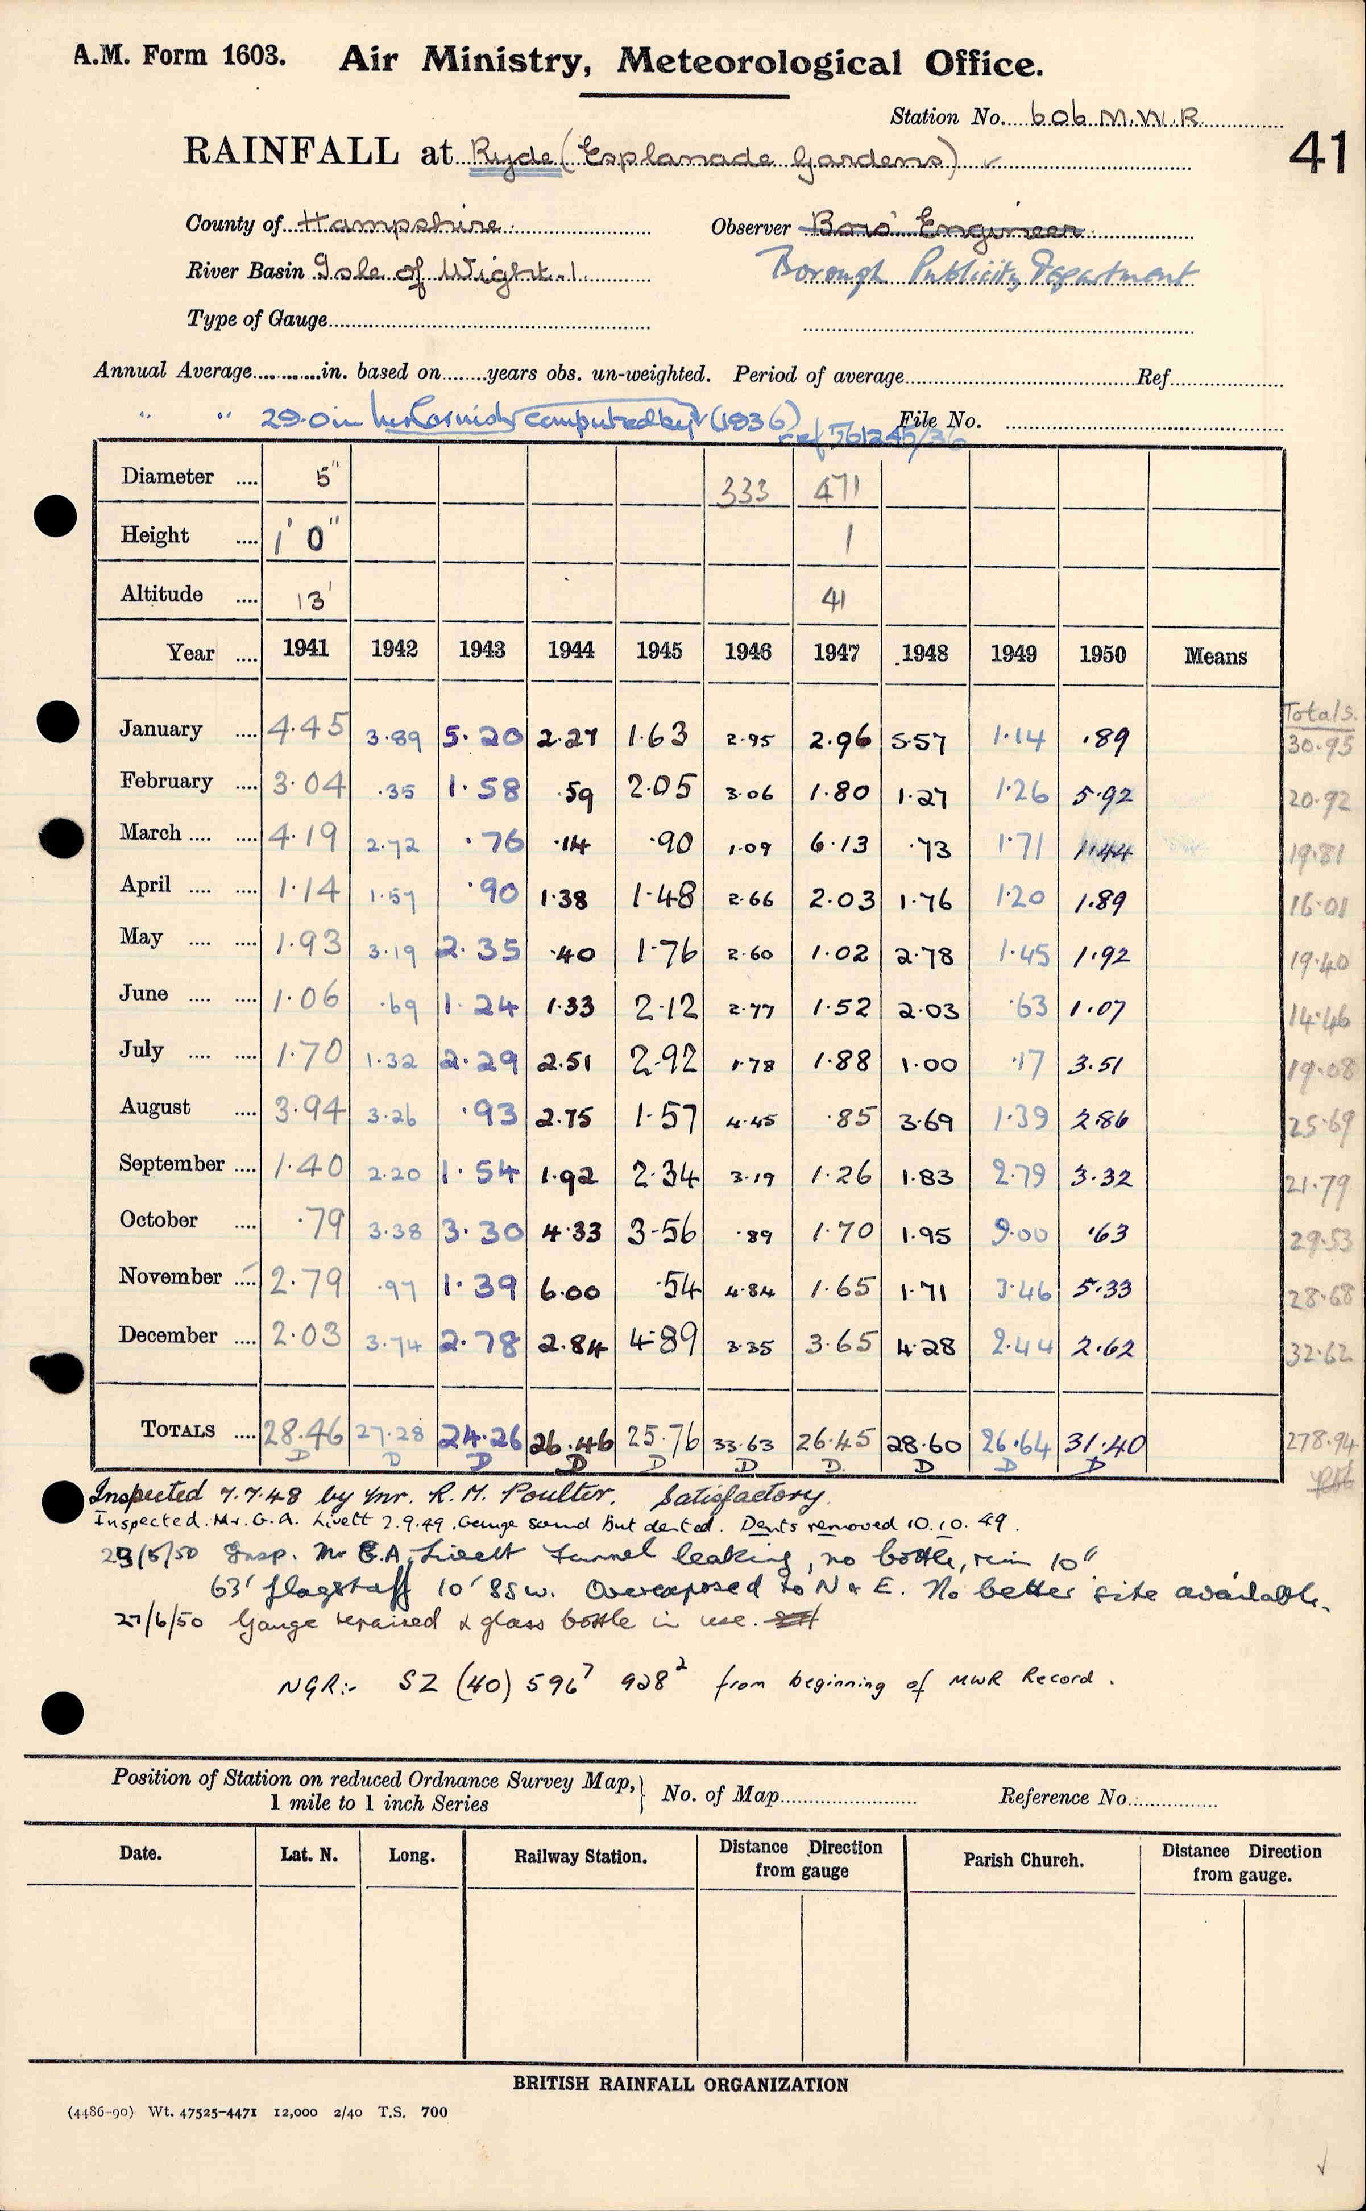 A.M. Form 1603. Air Ministry, Meteorological Office.
Station No. 606 M.W.R.
41
RAINFALL at Ryde (Esplanade Gardens) ✓
County of Hampshire Observer Boro' Engineer
River Basin Isle of Wight. 1. Borough Publicity Department
Type of Gauge
Annual Average in. based on years obs. un-weighted. Period of average Ref.
" " 29.0 in computed by (1936) File No.
ref 561245/36
Diameter .... 5" 333 471
Height .... 1' 0" 1
Altitude .... 13' 41
Year .... 1941 1942 1943 1944 1945 1946 1947 1948 1949 1950 Means
Totals.
January .... 4.45 3.89 5.20 2.27 1.63 2.95 2.96 5.57 1.14 .89 30.95
February .... 3.04 .35 1.58 .59 2.05 3.06 1.80 1.27 1.26 5.92 20.92
March .... .... 4.19 2.72 .76 .14 .90 1.09 6.13 .73 1.71 1.44 19.81
April .... .... 1.14 1.57 .90 1.38 1.48 2.66 2.03 1.76 1.20 1.89 16.01
May .... .... 1.93 3.19 2.35 .40 1.76 2.60 1.02 2.78 1.45 1.92 19.40
June .... .... 1.06 .69 1.24 1.33 2.12 2.77 1.52 2.03 .63 1.07 14.46
July .... .... 1.70 1.32 2.29 2.51 2.92 1.78 1.88 1.00 .17 3.51 19.08
August .... 3.94 3.26 .93 2.75 1.57 4.45 .85 3.69 1.39 2.86 25.69
September .... 1.40 2.20 1.54 1.92 2.34 3.19 1.26 1.83 2.79 3.32 21.79
October .... .79 3.38 3.30 4.33 3.56 .89 1.70 1.95 9.00 .63 29.53
November .... 2.79 .97 1.39 6.00 .54 4.84 1.65 1.71 3.46 5.33 28.68
December .... 2.03 3.74 2.78 2.84 4.89 3.35 3.65 4.28 2.44 2.62 32.62
TOTALS .... 28.46 27.28 24.26 26.46 25.76 33.63 26.45 28.60 26.64 31.40 278.94
D D D D D D D D D D
Inspected 7.7.48 by Mr. R. M. Poulter. Satisfactory.
Inspected. Mr. G. A. Livett 2.9.49. Gauge sound But dented. Dents removed 10.10.49.
23/5/50 Insp. Mr G.A. Livett Funnel leaking, no bottle, rim 10"
63' flagstaff 10' 85w. Overexposed to N & E. No better site available.
27/6/50 Gauge repaired & glass bottle in use.
NGR:- SZ (40) 596⁷ 928² from beginning of MWR Record.
Position of Station on reduced Ordnance Survey Map, } No. of Map Reference No.
1 mile to 1 inch Series
Date. Lat. N. Long. Railway Station. Distance Direction from gauge Parish Church. Distance Direction from gauge.
BRITISH RAINFALL ORGANIZATION
(4486-90) Wt. 47525-4471 12,000 2/40 T.S. 700
✓